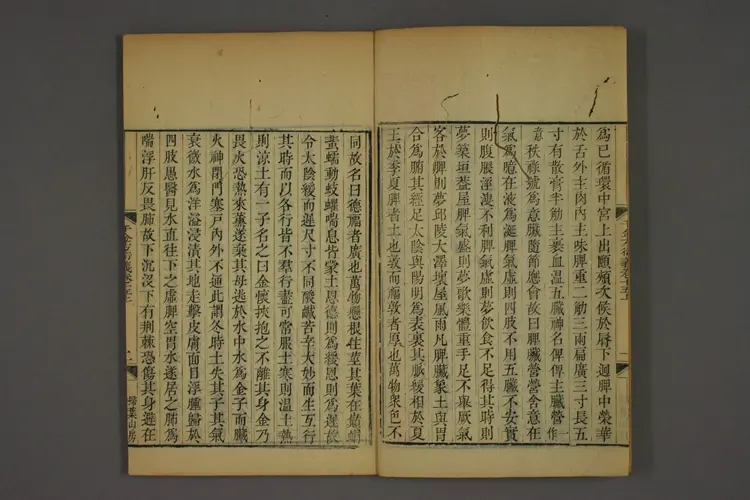 為已循環中宮上出頤頰次候於唇下迴脾中榮華
於舌外主肉內主味脾重二觔三兩扁廣三寸長五
寸有散膏半觔主裹血溫五臟神名俾俾主臟營一作
意秩祿號為意臟隨節應會故曰脾臟營營舍意在
氣為噫在液為涎脾氣虛則四肢不用五臟不安實
則腹脹涇溲不利脾氣虛則夢飲食不足得其時則
夢築垣蓋屋脾氣盛則夢歌樂體重手足不舉厥氣
客於脾則夢邱陵大澤壞屋風雨凡脾臟象土與胃
合為腑其經足太陰與陽明為表裏其脈緩相於夏
王於季夏脾者土也敦而福敦者厚也萬物眾色不
同故名曰德福者廣也萬物懸根住莖其葉在巔蜎
蜚蠕動蚑蠷喘息皆蒙土恩德則為緩恩則為遲故
令太陰緩而遲尺寸不同酸鹹苦辛大妙而生互行
其時而以各行皆不羣行盡可常服土寒則溫土熱
則涼土有一子名之曰金懷挾抱之不離其身金乃
畏火恐熱來薰遂棄其母逃於水中水為金子而臟
火神閉門塞戶內外不通此謂冬時土失其子其氣
衰微水為洋溢浸漬其地走擊皮膚面目浮腫歸於
四肢愚醫見水直往下之虛脾空胃水遂居之肺為
喘浮肝反畏肺故下沉沒下有荊棘恐傷其身避在
二
掃葉山房